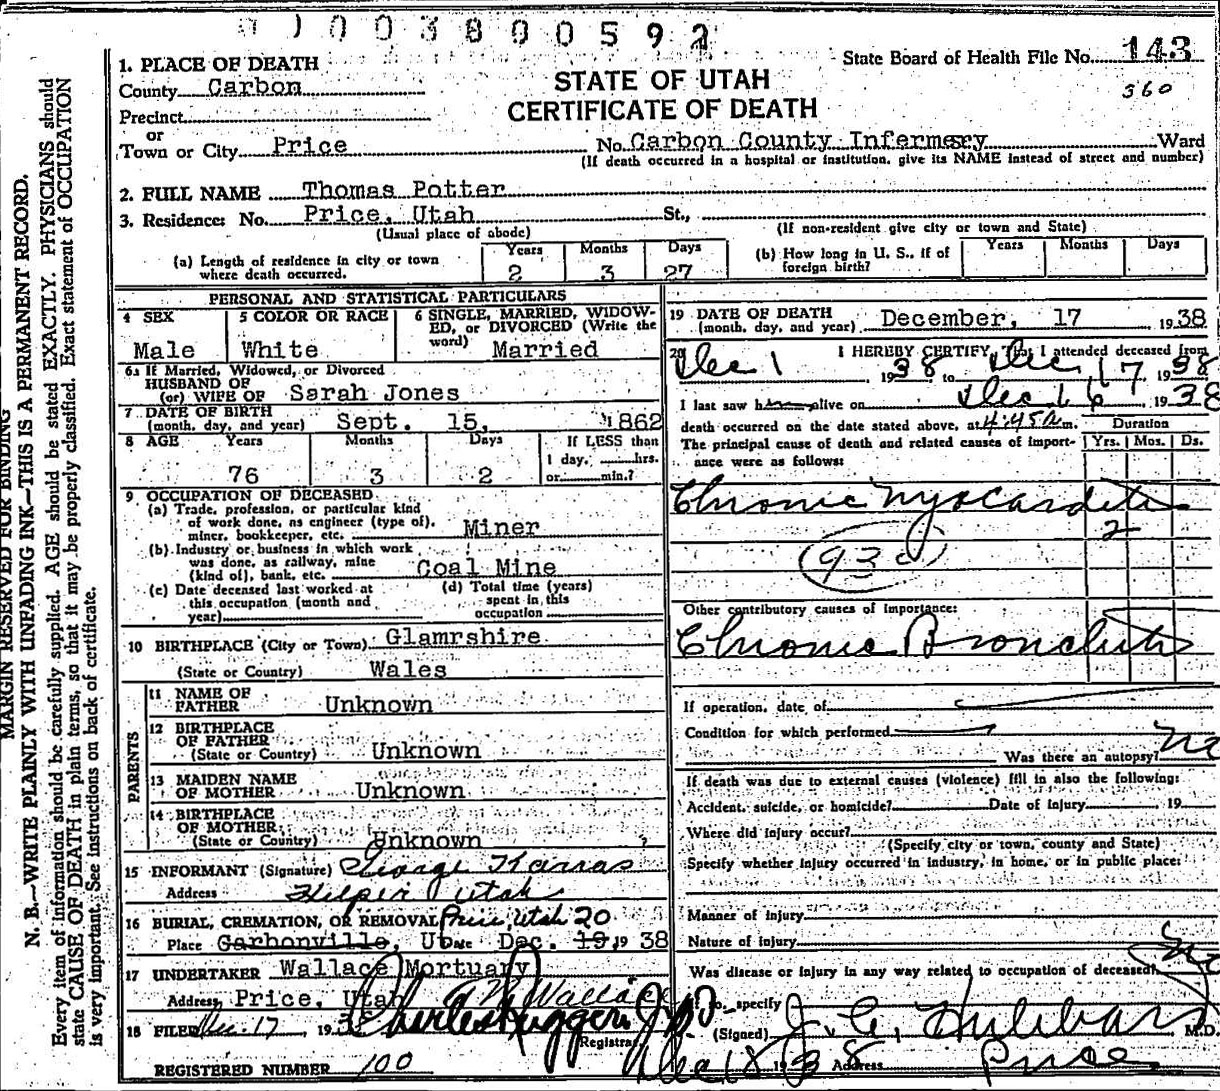 003800592
State Board of Health File No. 143
360
STATE OF UTAH
CERTIFICATE OF DEATH
1. PLACE OF DEATH
County Carbon
Precinct
or
Town or City Price No. Carbon County Infermery Ward
(If death occurred in a hospital or institution, give its NAME instead of street and number)
2. FULL NAME Thomas Potter
3. Residence: No. Price, Utah St.,
(Usual place of abode) (If non-resident give city or town and State)
(a) Length of residence in city or town where death occurred. Years 2 Months 3 Days 27
(b) How long in U. S., if of foreign birth? Years Months Days
PERSONAL AND STATISTICAL PARTICULARS
4 SEX Male
5 COLOR OR RACE White
6 SINGLE, MARRIED, WIDOWED, or DIVORCED (Write the word) Married
6a If Married, Widowed, or Divorced
HUSBAND OF
(or) WIFE OF Sarah Jones
7 DATE OF BIRTH
(month, day, and year) Sept. 15, 1862
8 AGE Years 76 Months 3 Days 2
If LESS than
1 day, hrs.
or min.?
9 OCCUPATION OF DECEASED
(a) Trade, profession, or particular kind
of work done, as engineer (type of),
miner, bookkeeper, etc. Miner
(b) Industry or business in which work
was done, as railway, mine
(kind of), bank, etc. Coal Mine
(c) Date deceased last worked at
this occupation (month and
year)
(d) Total time (years)
spent in this
occupation
10 BIRTHPLACE (City or Town) Glamrshire
(State or Country) Wales
PARENTS
11 NAME OF
FATHER Unknown
12 BIRTHPLACE
OF FATHER
(State or Country) Unknown
13 MAIDEN NAME
OF MOTHER Unknown
14 BIRTHPLACE
OF MOTHER
(State or Country) Unknown
15 INFORMANT (Signature) George Karras
Address Helper Utah
16 BURIAL, CREMATION, OR REMOVAL Price, Utah 20
Place Carbonville, Ut Date Dec. 19, 1938
17 UNDERTAKER Wallace Mortuary
Address Price, Utah Wallace
18 FILED Dec. 17, 193
Registrar
REGISTERED NUMBER 100
19 DATE OF DEATH
(month, day, and year) December, 17 1938
20 I HEREBY CERTIFY, That I attended deceased from
Dec 1 1938 to Dec 17 1938
I last saw h alive on Dec 16 1938
death occurred on the date stated above, at 4:45a m.
The principal cause of death and related causes of importance were as follows:
Duration
Yrs. Mos. Ds.
Chronic Myocarditis
2
93c
Other contributory causes of importance:
Chronic Bronchitis
If operation, date of
Condition for which performed
Was there an autopsy? no
If death was due to external causes (violence) fill in also the following:
Accident, suicide, or homicide? Date of injury 19
Where did injury occur?
(Specify city or town, county and State)
Specify whether injury occurred in industry, in home, or in public place:
Manner of injury
Nature of injury
Was disease or injury in any way related to occupation of deceased? no
If so, specify
(Signed) J. C. Hubbard M.D.
Dec 18 1938 Address Price
MARGIN RESERVED FOR BINDING
N. B.—WRITE PLAINLY WITH UNFADING INK—THIS IS A PERMANENT RECORD.
Every item of information should be carefully supplied. AGE should be stated EXACTLY. PHYSICIANS should
state CAUSE OF DEATH in plain terms, so that it may be properly classified. Exact statement of OCCUPATION
is very important. See instructions on back of certificate.